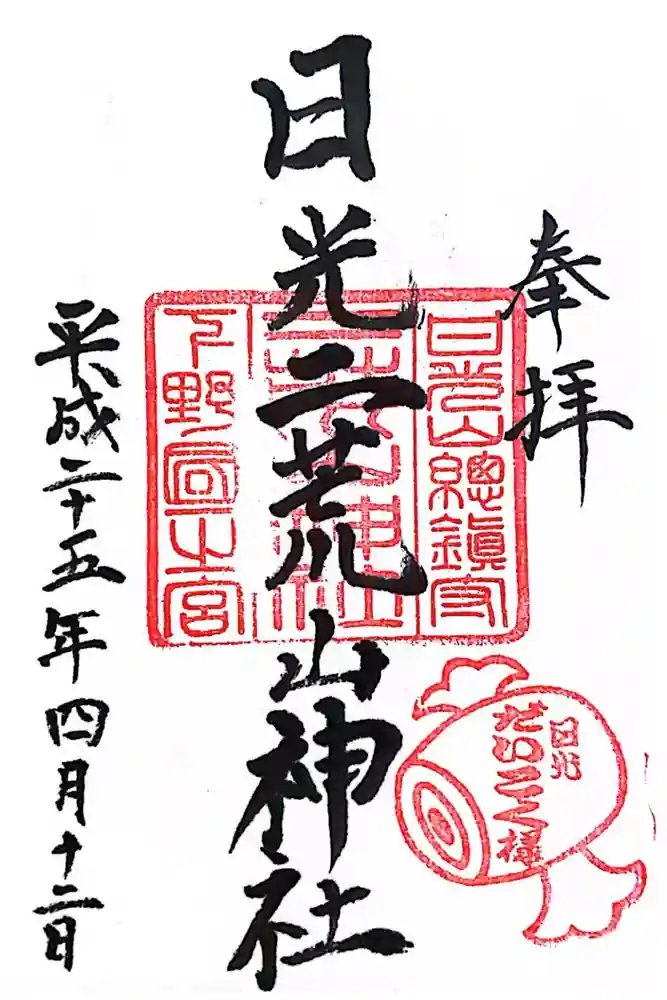 奉拝
日光二荒山神社
平成二十五年四月十二日
日光山總鎮守
二荒山神社
下野国一之宮
日光
だいこく様